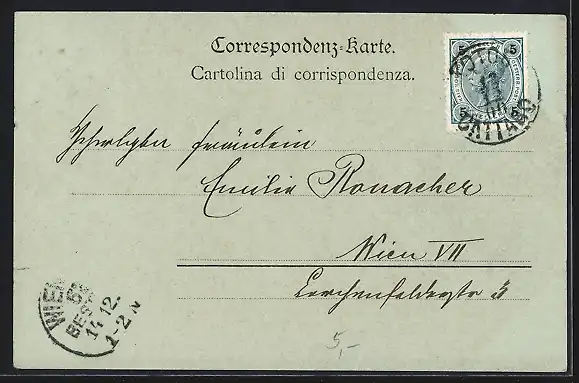 Correspondenz-Karte.
Cartolina di corrispondenza.
5 5
5 5
CATTARO
Fräulein
Emilie Ronacher
Wien VII
Lerchenfelderstr 3
WIEN
BEST
14.12.
1-2 N
5,-